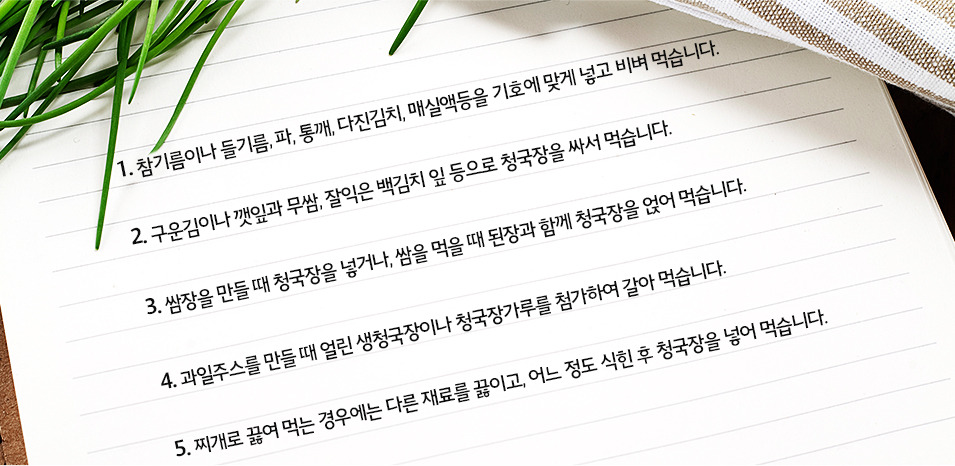 1. 참기름이나 들기름, 파, 통깨, 다진김치, 매실액등을 기호에 맞게 넣고 비벼 먹습니다.
2. 구운김이나 깻잎과 무쌈, 잘익은 백김치 잎 등으로 청국장을 싸서 먹습니다.
3. 쌈장을 만들 때 청국장을 넣거나, 쌈을 먹을 때 된장과 함께 청국장을 얹어 먹습니다.
4. 과일주스를 만들 때 얼린 생청국장이나 청국장가루를 첨가하여 갈아 먹습니다.
5. 찌개로 끓여 먹는 경우에는 다른 재료를 끓이고, 어느 정도 식힌 후 청국장을 넣어 먹습니다.